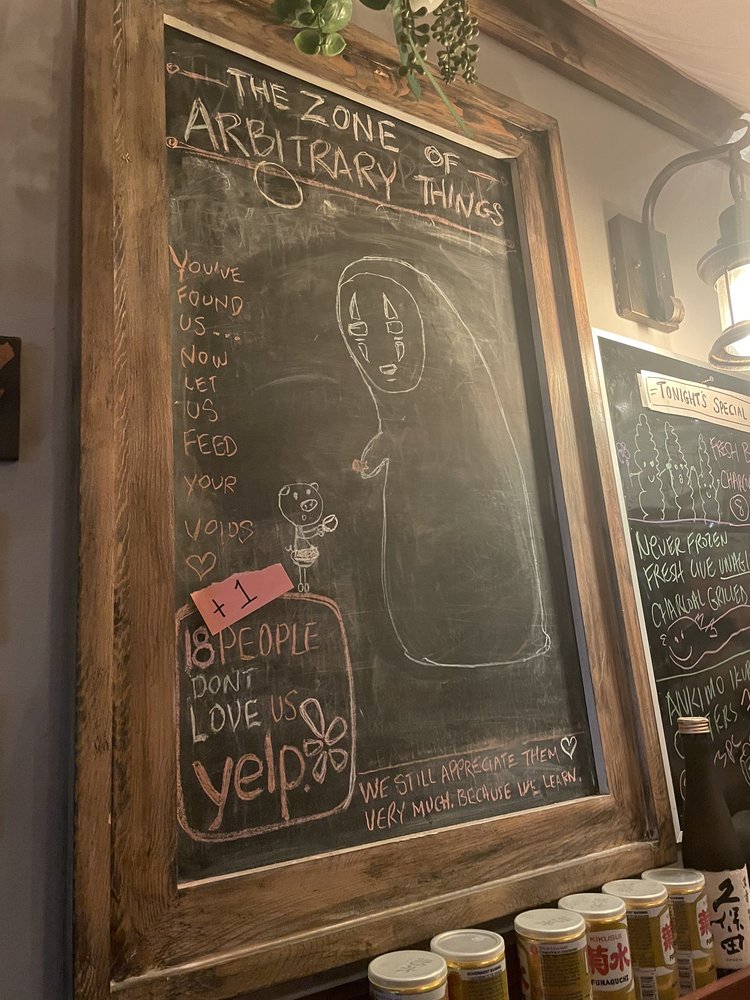 THE ZONE OF
ARBITRARY THINGS
YOU'VE
FOUND
US....
NOW
LET
US
FEED
YOUR
VOIDS
+1
18 PEOPLE
DONT
LOVE US
yelp
WE STILL APPRECIATE THEM
VERY MUCH. BECAUSE WE LEARN.
=TONIGHT'S SPECIAL
FRESH
NEVER FROZEN
FRESH LIVE
CHARCOAL GRILLED
ANKIMO
KIKUSUI
菊水
FUNAGUCHI
久保田